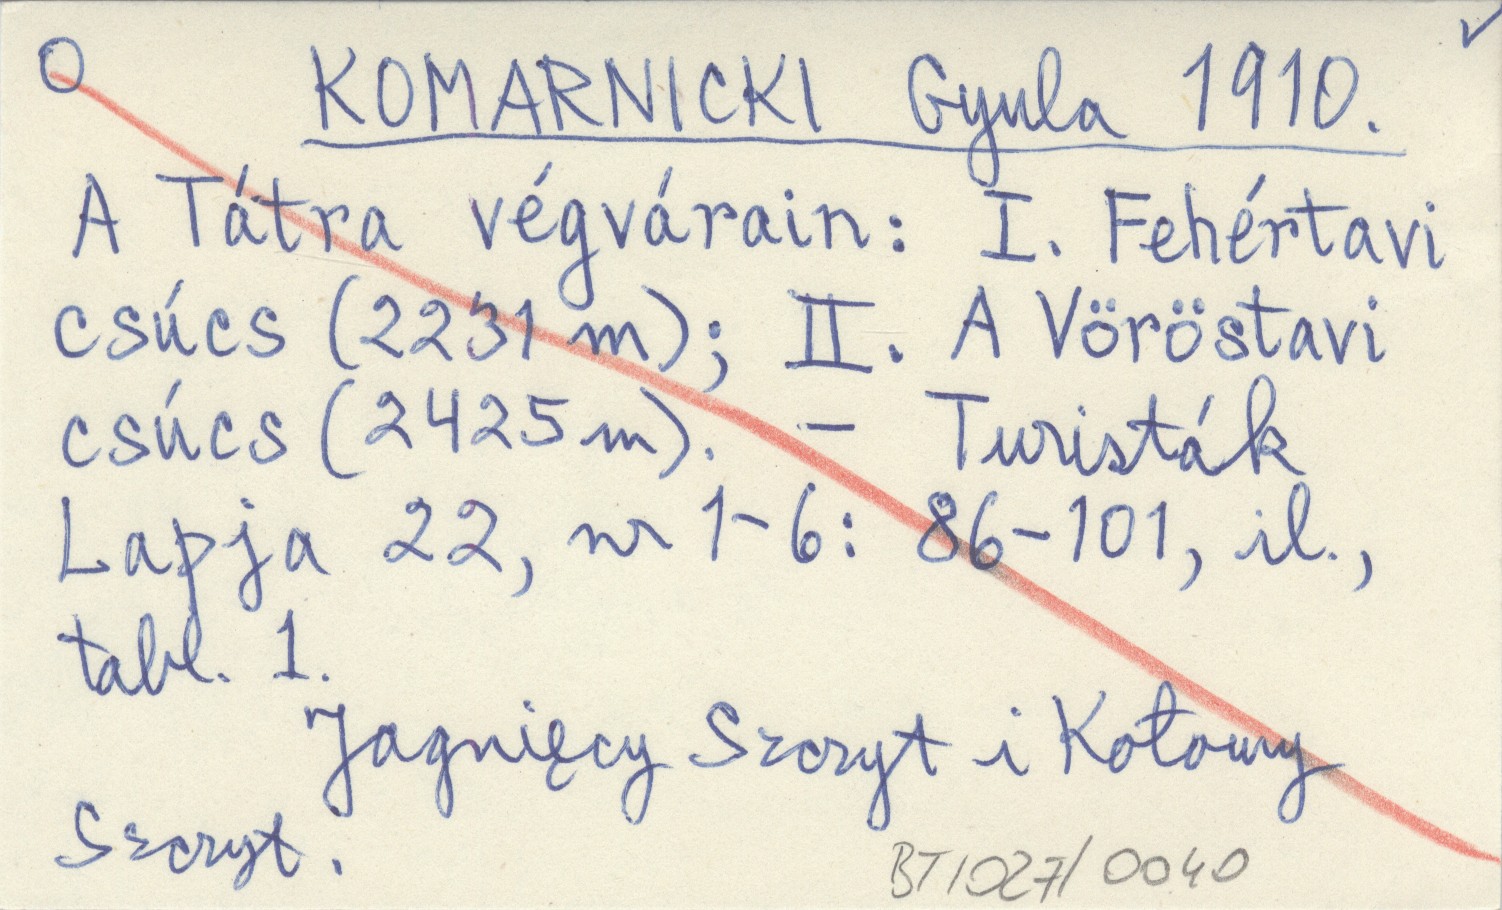 KOMARNICKI Gyula 1910.
A Tátra végvárain: I. Fehértavi
csúcs (2231 m); II. A Vöröstavi
csúcs (2425 m). – Turisták
Lapja 22, nr 1-6: 86-101, il.,
tabl. 1.
Jagnięcy Szczyt i Kołowy
Szczyt.
BT1027/0040